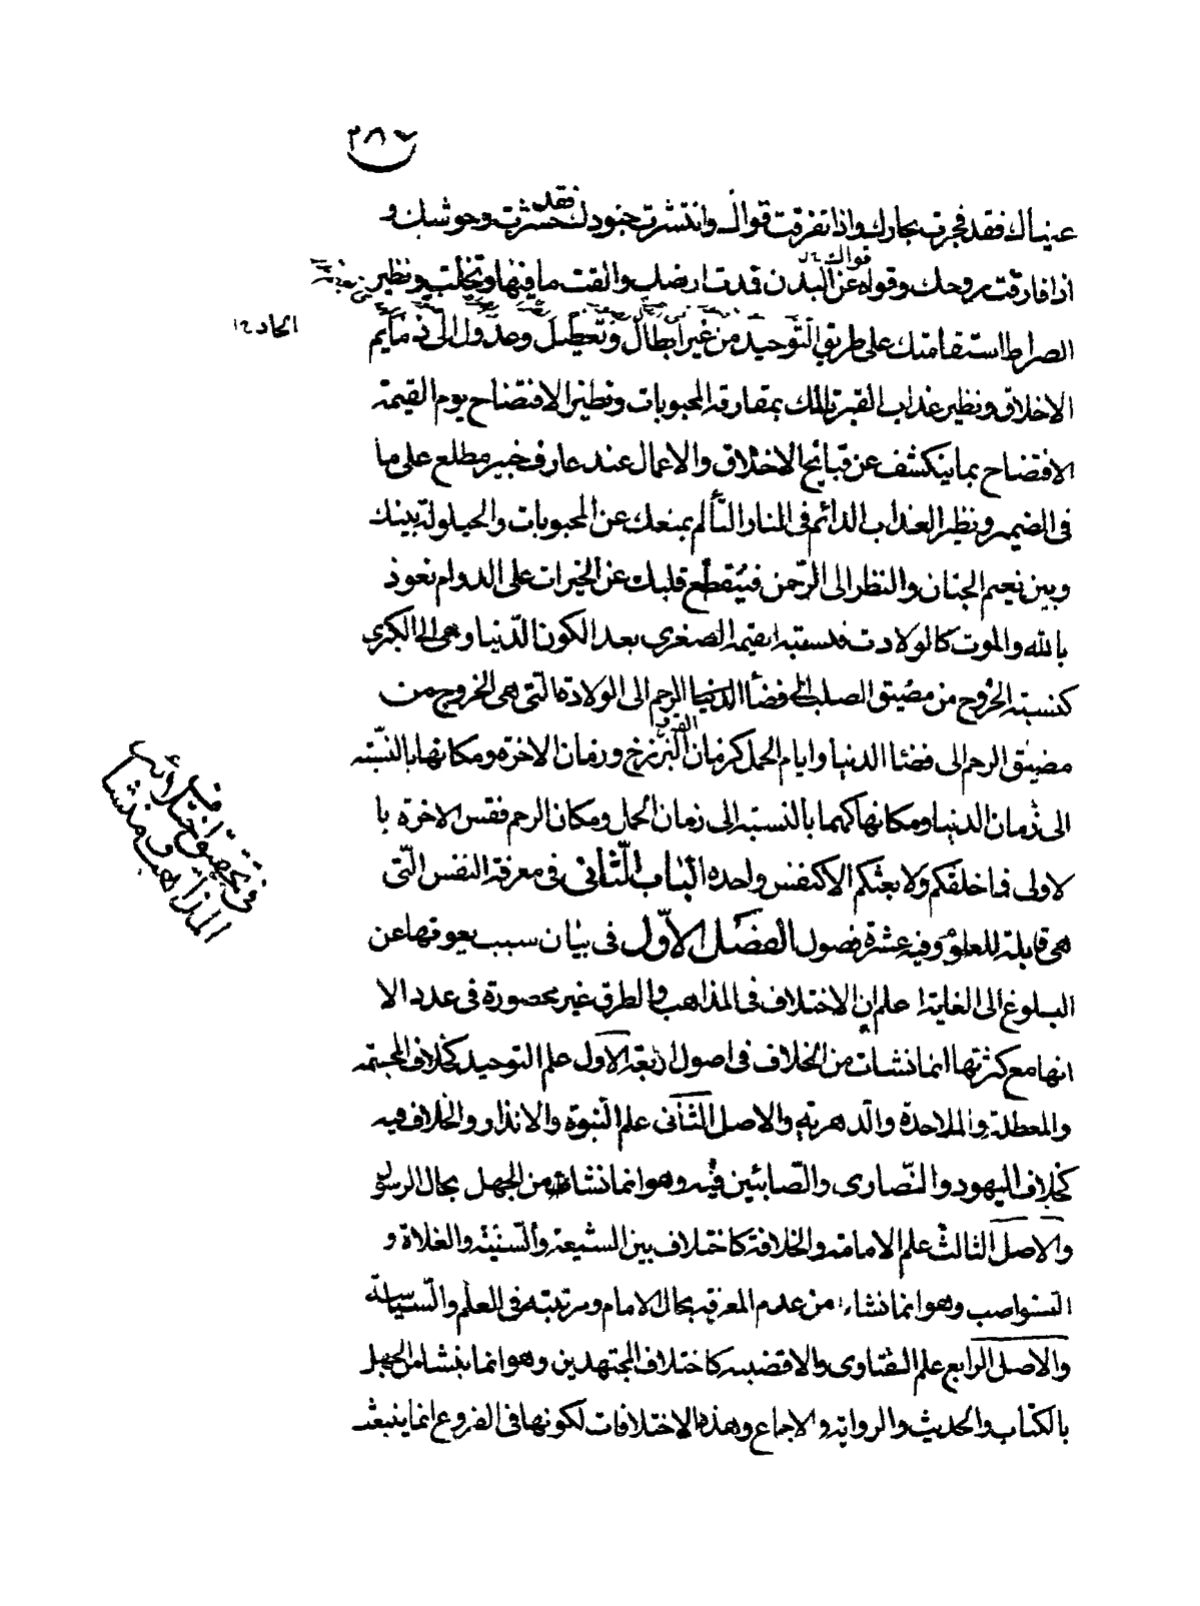 ٢٨٧
عيناك فقد فجرت بحارك واذا تفرقت قواك وانتشرت جنودك فقد حشرت وحوشك و
اذا فارقت روحك وقواه عن البدن قدت ارضك والقت ما فيها وتخلت ونظير
قواك ١٢
الصراط استقامتك على طريق التوحيد من غير ابطال وتعطيل وعدول الى ذمائم
الحاد ١٢
الاخلاق ونظير عذاب القبر تالمك بمفارقة المحبوبات ونظير الافتضاح يوم القيمة
الافتضاح بما ينكشف عن قبايح الاخلاق والاعمال عند عارف خبير مطلع على ما
فى الضمير ونظير العذاب الدائم فى النار التألم بمنعك عن المحبوبات والحيلولة بينك
وبين نعيم الجنان والنظر الى الرّحمن فينقطع قلبك عن الخيرات على الدوام نعوذ
بالله والموت كالولادت فنسبة القيمة الصغرى بعد الكون الدّنيا وهى الى الكبرى
كنسبة الخروج من مضيق الصلب الى فضأ الرحم الى الولادة التى هى الخروج من
مضيق الرحم الى فضأ الدنيا وايام الحمل كزمان البرزخ وزمان الاخرة ومكانها بالنسّبة
القبر
الى زمان الدنيا ومكانها كهما بالنسبة الى زمان الحمل ومكان الرحم فقس الاخرة با
لاولى فما خلقكم ولا بعثكم الا كنفس واحدة الباب الثّانى فى معرفة النفس الّتى
هى قابلة للعلوم وفيه عشرة فصول الفصل الاوّل فى بيان سبب يعوقها عن
فى تحقيق اختلاف
المذاهب ومنشأ
البلوغ الى الغاية اعلم ان الاختلاف فى المذاهب والطرق غير محصورة فى عدد الا
انها مع كثرتها انما نشأت من الخلاف فى اصول اربعة الاول علم التوحيد كخلاف المجسمة
والمعطلة والملاحدة والدهرية والاصل الثّانى علم النبوّة والانذار والخلاف فيه
كخلاف اليهود والنّصارى والصّابئين فيه وهو انما نشات من الجهل بحال الرسول
والاصل الثالث علم الامامة والخلافة كاختلاف بين الشيعة والسّنية والغلاة و
النواصب وهو انما نشاء من عدم المعرفة بحال الامام ومرتبته فى العلم والسّياسة
والاصل الرابع علم الفتاوى والاقضية كاختلاف المجتهدين وهو انما ينشا من الجهل
بالكتاب والحديث والرواية والاجماع وهذه الاختلافات لكونها فى الفروع انما ينبعث